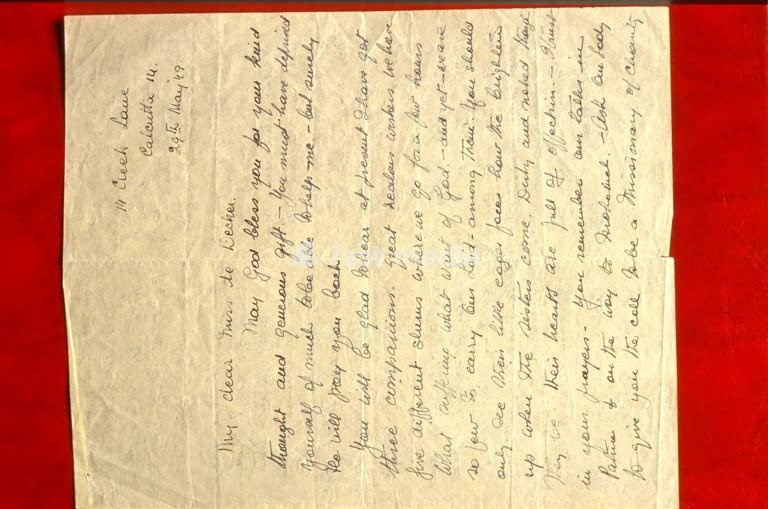 14 Creek Lane
Calcutta 14.
29th May '49
My dear Miss de Decker.
May God bless you for your kind
thought and generous gift. – You must have deprived
yourself of much to be able to help me. – but surely
He will pay you back.
You will be glad to hear at present I have got
three companions – great zealous workers. we have
five different slums where we go for a few hours
What suffering what want of God. – and yet – we are
so few to carry Our Lord – among them. You should
only see their little eager faces how the brighten
up when the sisters come. Dirty and naked they
may be – their hearts are full of affection. – I trust
in your prayers – You remember our talks in
Patna & on the way to Mokameh. – Ask Our Lady
to give you the call to be a Missionary of Charity